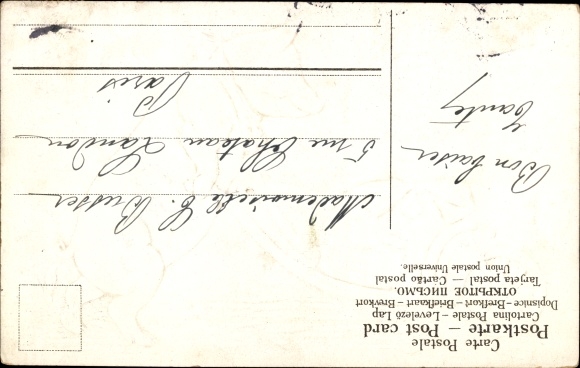 Carte Postale
Postkarte — Post card
Cartolina Postale – Levelező Lap
Dopisnice – Brefkort – Briefkaart – Brevkort
ОТКРЫТОЕ ПИСЬМО.
Tarjeta postal — Cartão postal
Union postale Universelle.
Bon baiser
Mademoiselle C. Busser
5 rue Chateau Landon
Paris